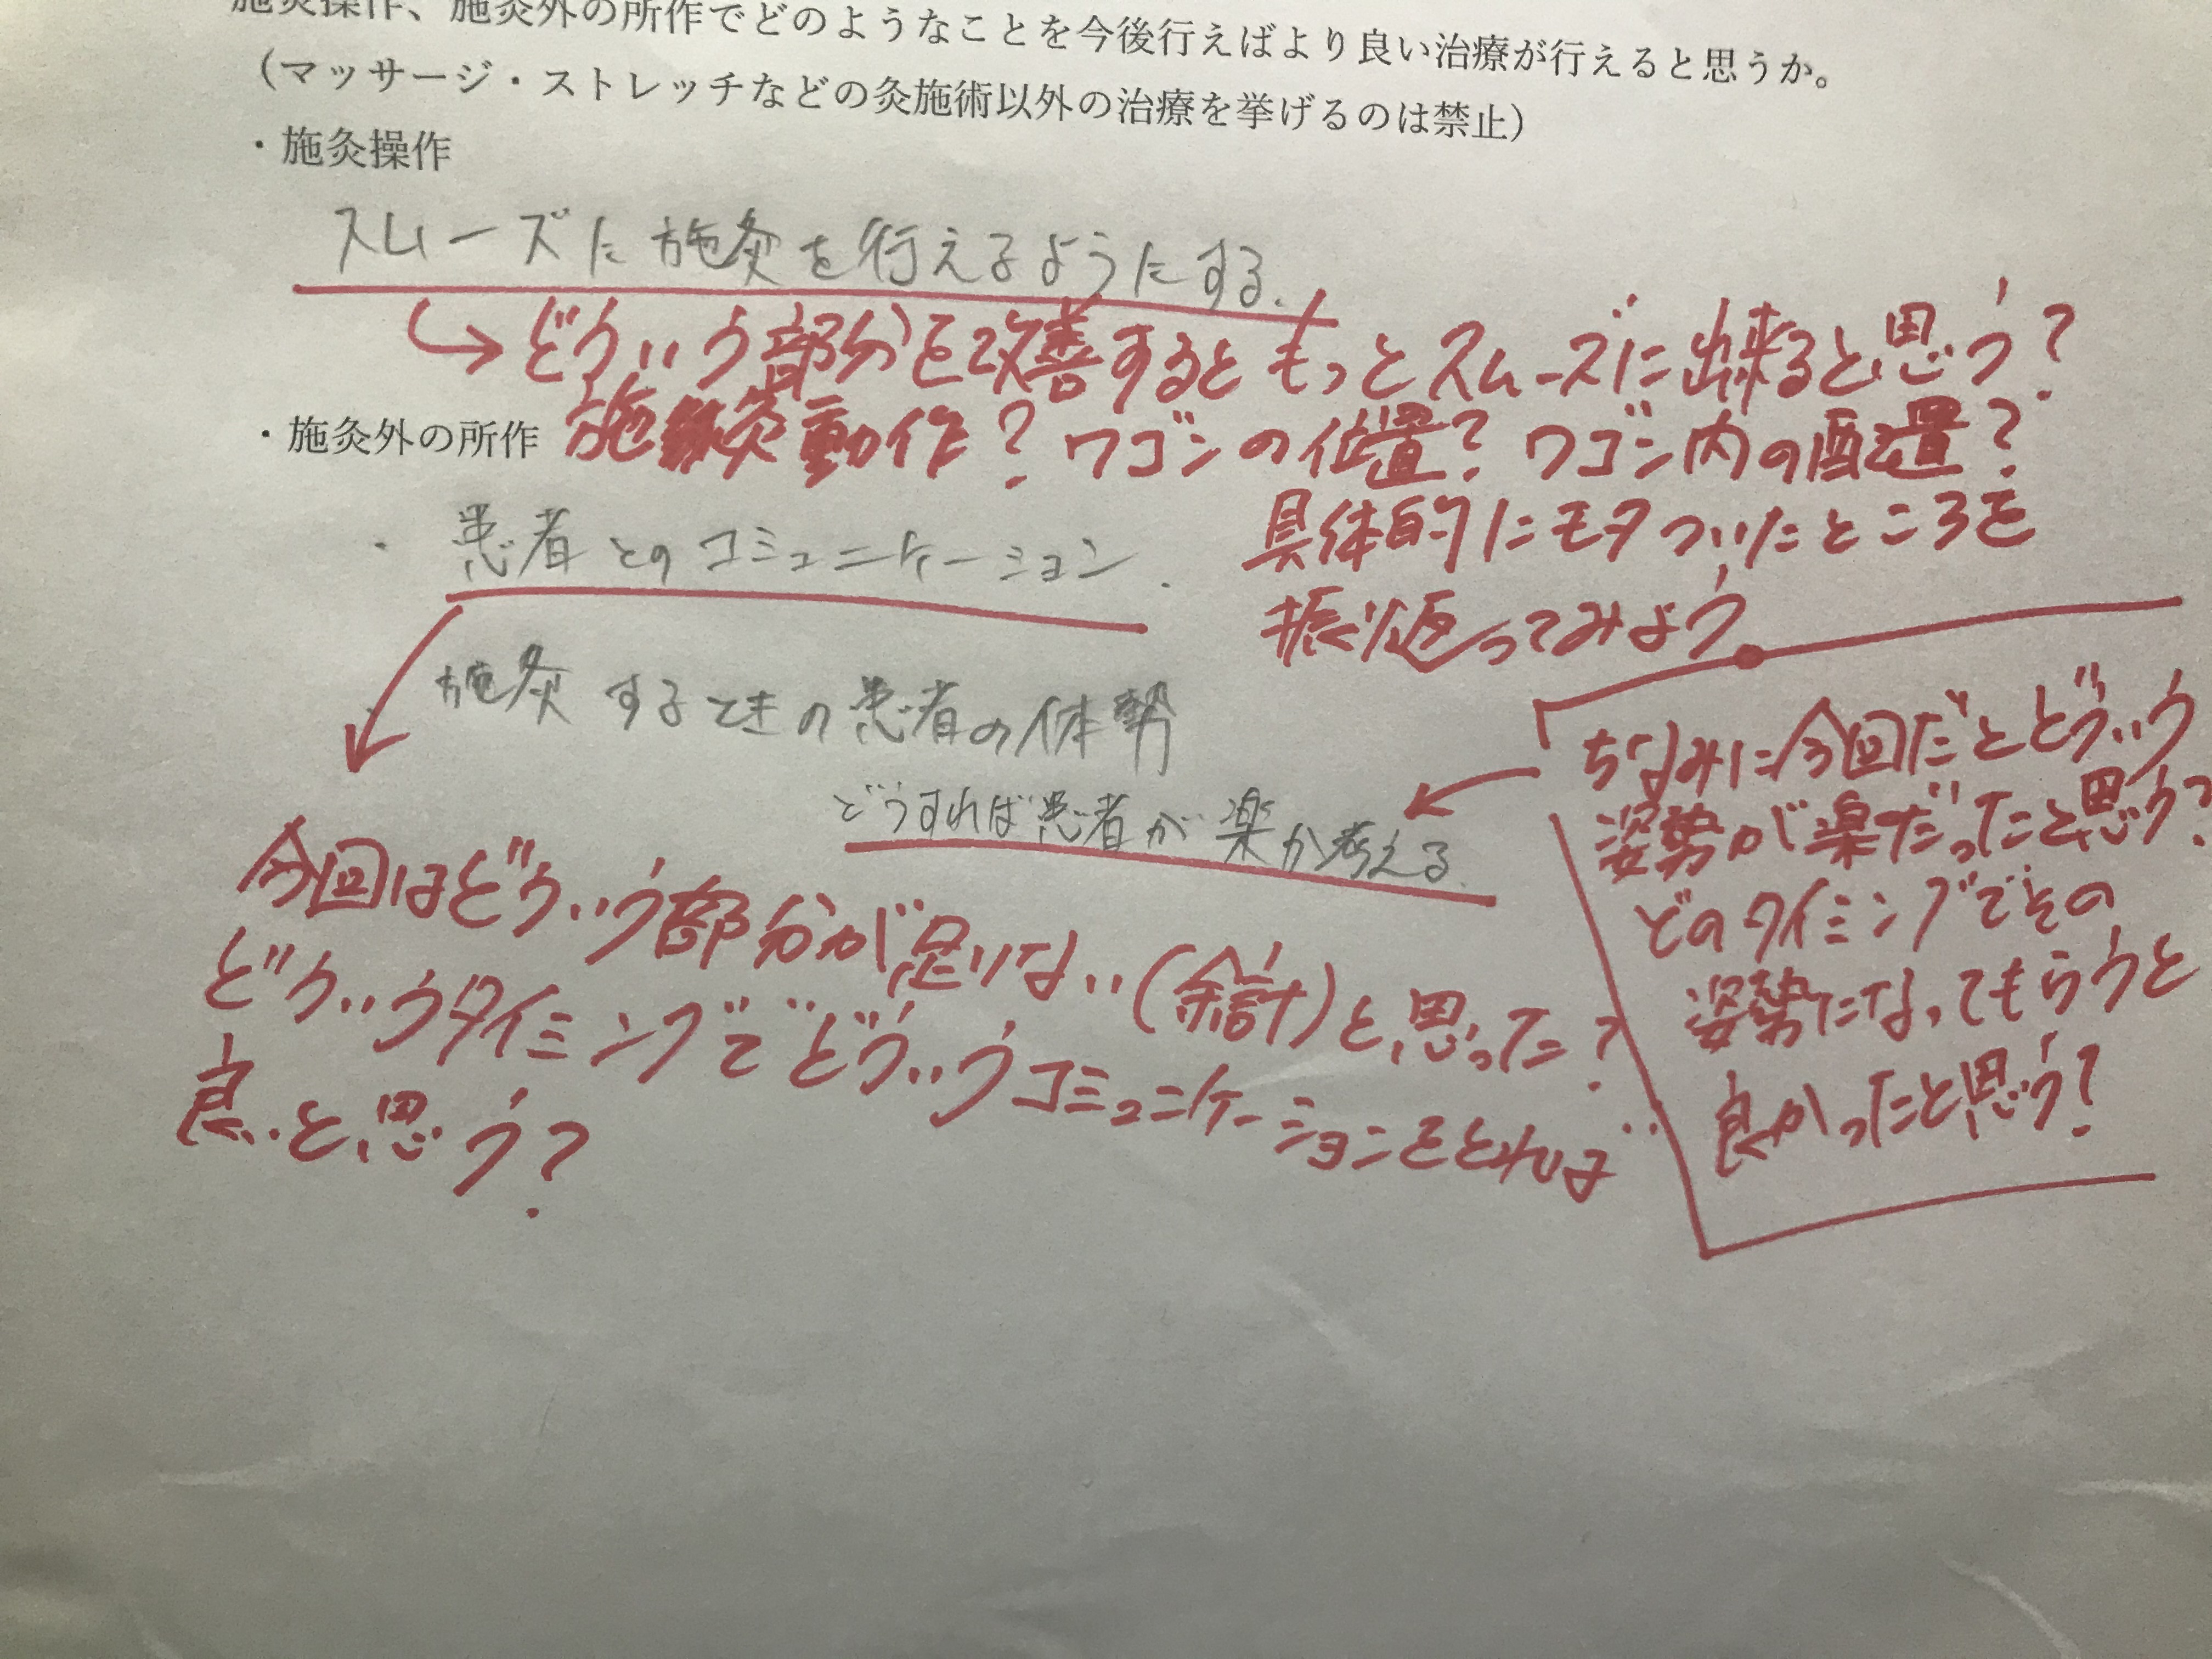 施灸操作、施灸外の所作でどのようなことを今後行えばより良い治療が行えると思うか。
（マッサージ・ストレッチなどの灸施術以外の治療を挙げるのは禁止）
・施灸操作
スムーズに施灸を行えるようにする.
↳どういう部分を改善するともっとスムーズに出来ると思う?
・施灸外の所作
施灸動作? ワゴンの位置? ワゴン内の配置?
具体的にモタついたところを
振り返ってみよう。
・患者とのコミュニケーション.
施灸するときの患者の体勢
どうすれば患者が楽か考える.
ちなみに今回だとどういう
姿勢が楽だったと思う?
どのタイミングでその
姿勢になってもらうと
良かったと思う?
今回はどういう部分が足りない(余計)と思った?
どういうタイミングでどういうコミュニケーションをとれば
良いと思う?